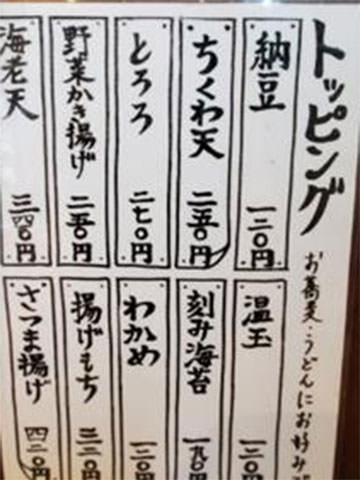 トッピング
お蕎麦・うどんにお好み
納豆 一二〇円
ちくわ天 二五〇円
とろろ 二七〇円
野菜かき揚げ 二五〇円
海老天 三四〇円
温玉 一二〇円
刻み海苔 一九〇円
わかめ 一二〇円
揚げもち 三二〇円
さつま揚げ 四二〇円